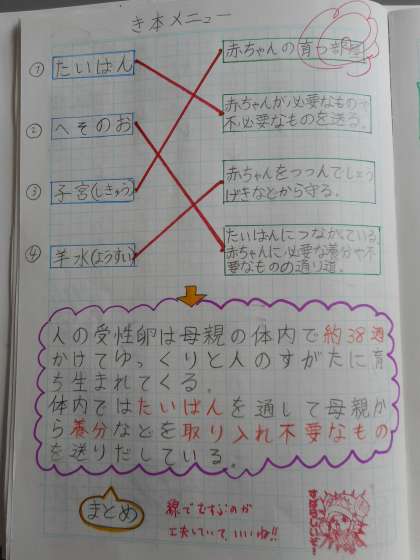 き本メニュー
① たいばん
② へそのお
③ 子宮(しきゅう)
④ 羊水(ようすい)
赤ちゃんの育つ部屋
赤ちゃんが必要なものや
不必要なものを送る。
赤ちゃんをつつんでしょう
げきなどから守る。
たいばんにつながっている。
赤ちゃんに必要な養分や不
要なものの通り道。
人の受性卵は母親の体内で約38週
かけてゆっくりと人のすがたに育
ち生まれてくる。
体内ではたいばんを通して母親か
ら養分などを取り入れ不要なもの
を送りだしている。
まとめ
線でむすぶのが
工夫していて、いいね!!